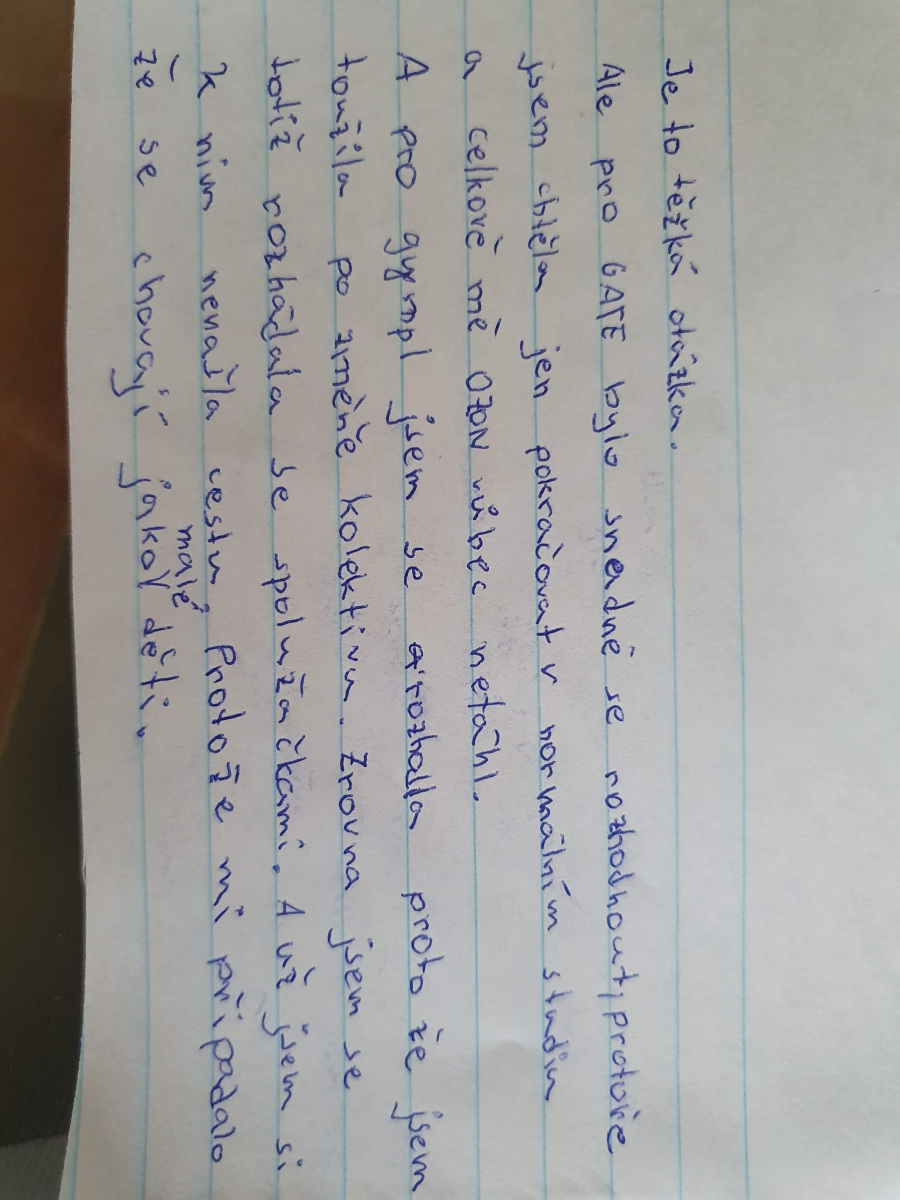 Je to těžká otázka.
Ale pro GATE bylo snadné se rozhodnout, protože
jsem chtěla jen pokračovat v normálním studiu
a celkově mě OZON vůbec netáhl.
A pro gympl jsem se rozhodla proto že jsem
toužila po změně kolektivu. Zrovna jsem se
totiž rozhádala se spolužačkami. A už jsem si
k nim nenašla cestu. Protože mi připadalo
že se chovají jako malé děti.